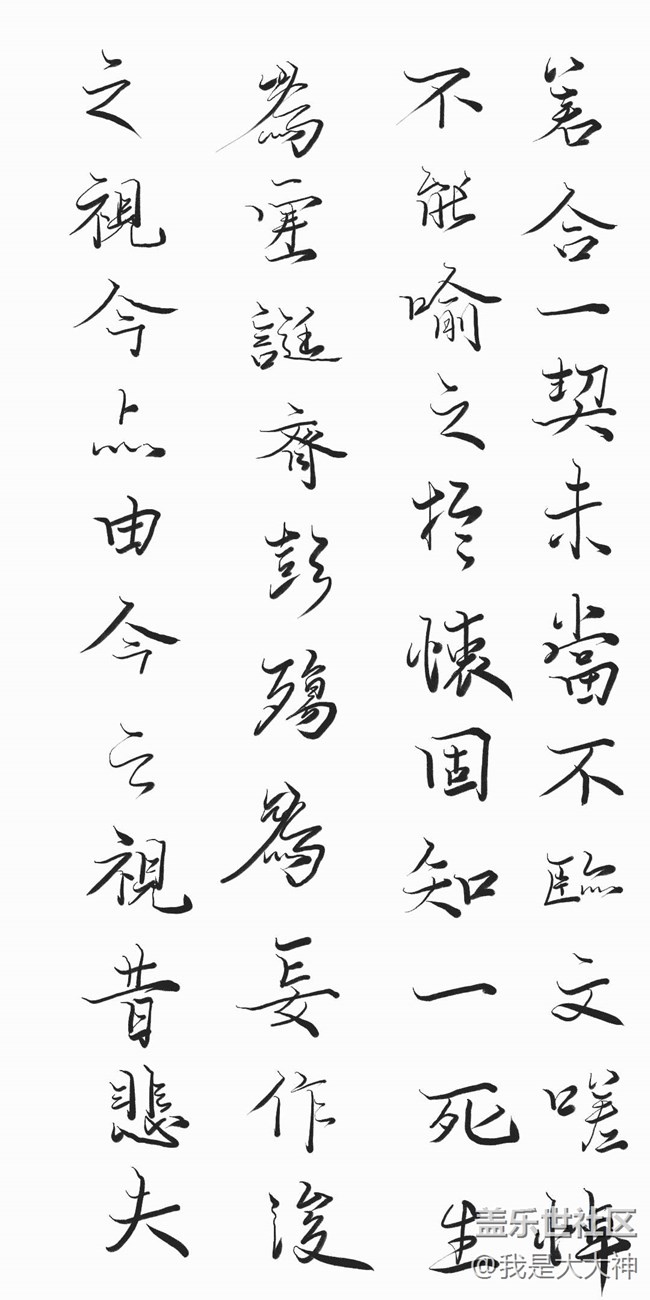 若合一契未嘗不臨文嗟悼
不能喻之於懷固知一死生
為虛誕齊彭殤為妄作後
之視今亦由今之視昔悲夫
盖乐世社区
@我是大大神